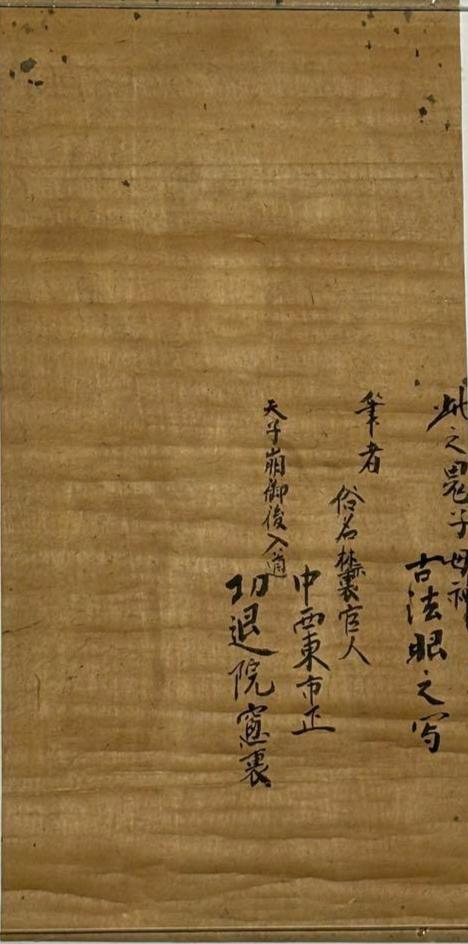 此之鬼子母神
古法眼之写
筆者
俗名禁裏官人
中西東市正
天子崩御後入道
功退院窓裏